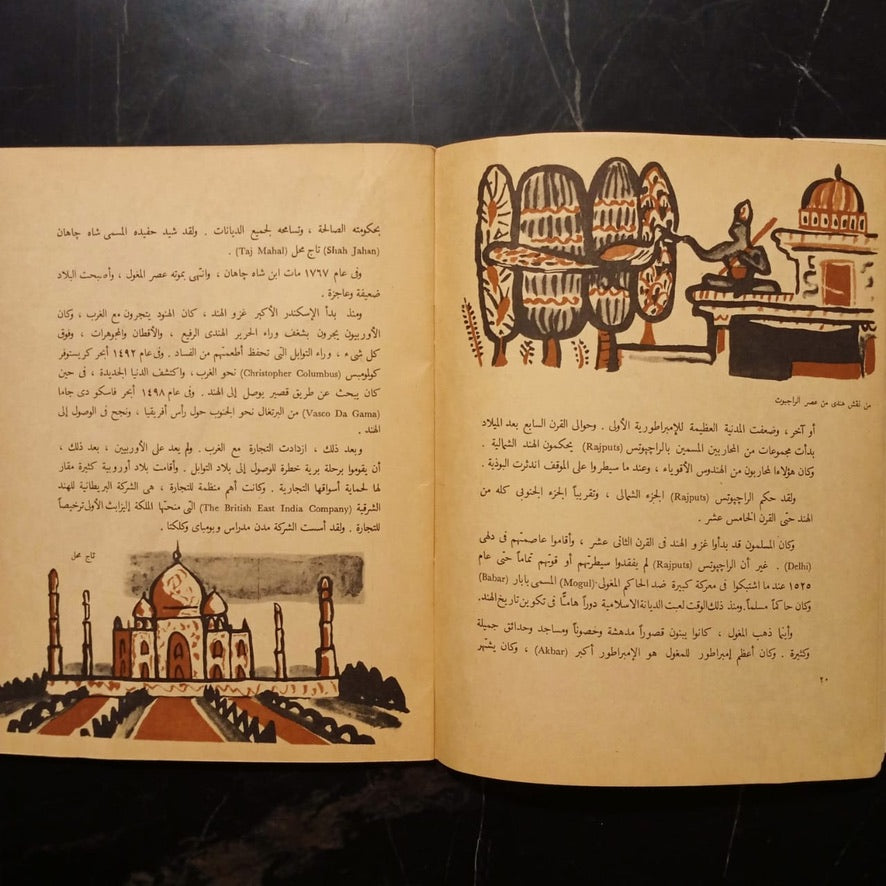 من نقش هندى من عصر الراجبوت
أو آخر ، وضعفت المدنية العظيمة للإمبراطورية الأولى . وحوالى القرن السابع بعد الميلاد
بدأت مجموعات من المحاربين المسمين بالراچپوتس (Rajputs) يحكمون الهند الشمالية .
وكان هؤلاء المحاربون من الهندوس الأقوياء ، وعند ما سيطروا على الموقف اندثرت البوذية .
ولقد حكم الراچپوتس (Rajputs) الجزء الشمالى ، وتقريباً الجزء الجنوبى كله من
الهند حتى القرن الخامس عشر .
وكان المسلمون قد بدأوا غزو الهند فى القرن الثانى عشر ، وأقاموا عاصمتهم فى دلهى
(Delhi) . غير أن الراچپوتس (Rajputs) لم يفقدوا سيطرتهم أو قوتهم تماماً حتى عام
١٥٢٥ عند ما اشتبكوا فى معركة كبيرة ضد الحاكم المغولى (Mogul) المسمى بابار (Babar)
وكان حاكماً مسلماً . ومنذ ذلك الوقت لعبت الديانة الاسلامية دوراً هاماً فى تكوين تاريخ الهند .
وأينما ذهب المغول ، كانوا يبنون قصوراً مدهشة وحصوناً ومساجد وحدائق جميلة
وكثيرة . وكان أعظم إمبراطور للمغول هو الإمبراطور أكبر (Akbar) ، وكان يشتهر
٢٠
بحكومته الصالحة ، وتسامحه لجميع الديانات . ولقد شيد حفيده المسمى شاه چاهان
(Shah Jahan) تاج محل (Taj Mahal) .
وفى عام ١٧٦٧ مات ابن شاه چاهان ، وانتهى بموته عصر المغول ، وأصبحت البلاد
ضعيفة وعاجزة .
ومنذ بدأ الإسكندر الأكبر غزو الهند ، كان الهنود يتجرون مع الغرب ، وكان
الأوربيون يجرون بشغف وراء الحرير الهندى الرفيع ، والأقطان والمجوهرات ، وفوق
كل شىء ، وراء التوابل التى تحفظ أطعمتهم من الفساد . وفى عام ١٤٩٢ أبحر كريستوفر
كولومبس (Christopher Columbus) نحو الغرب ، واكتشف الدنيا الجديدة ، فى حين
كان يبحث عن طريق قصير يوصل إلى الهند . وفى عام ١٤٩٨ أبحر فاسكو دى جاما
(Vasco Da Gama) من البرتغال نحو الجنوب حول رأس أفريقيا ، ونجح فى الوصول إلى
الهند .
وبعد ذلك ، ازدادت التجارة مع الغرب . ولم يعد على الأوربيين ، بعد ذلك ،
أن يقوموا برحلة برية خطرة للوصول إلى بلاد التوابل . وأقامت بلاد أوروبية كثيرة مقار
لها لحماية أسواقها التجارية . وكانت أهم منظمة للتجارة ، هى الشركة البريطانية للهند
الشرقية (The British East India Company) التى منحتها الملكة إليزابث الأولى ترخيصاً
للتجارة . ولقد أسست الشركة مدن مدراس وبومباى وكلكتا .
تاج محل